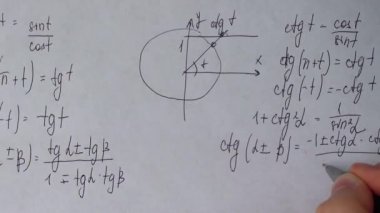 = sint/cost
π+t) = tgt
-t) = -tgt
± β) = (tgα ± tgβ)/(1 ∓ tgα · tgβ)
y ctg t
1
t
x
ctg t - cost/sint
ctg(π+t) = ctgt
ctg(-t) = -ctgt
1 + ctg²α = 1/sin²α
ctg(α ± β) = -1 ± ctgα · ct